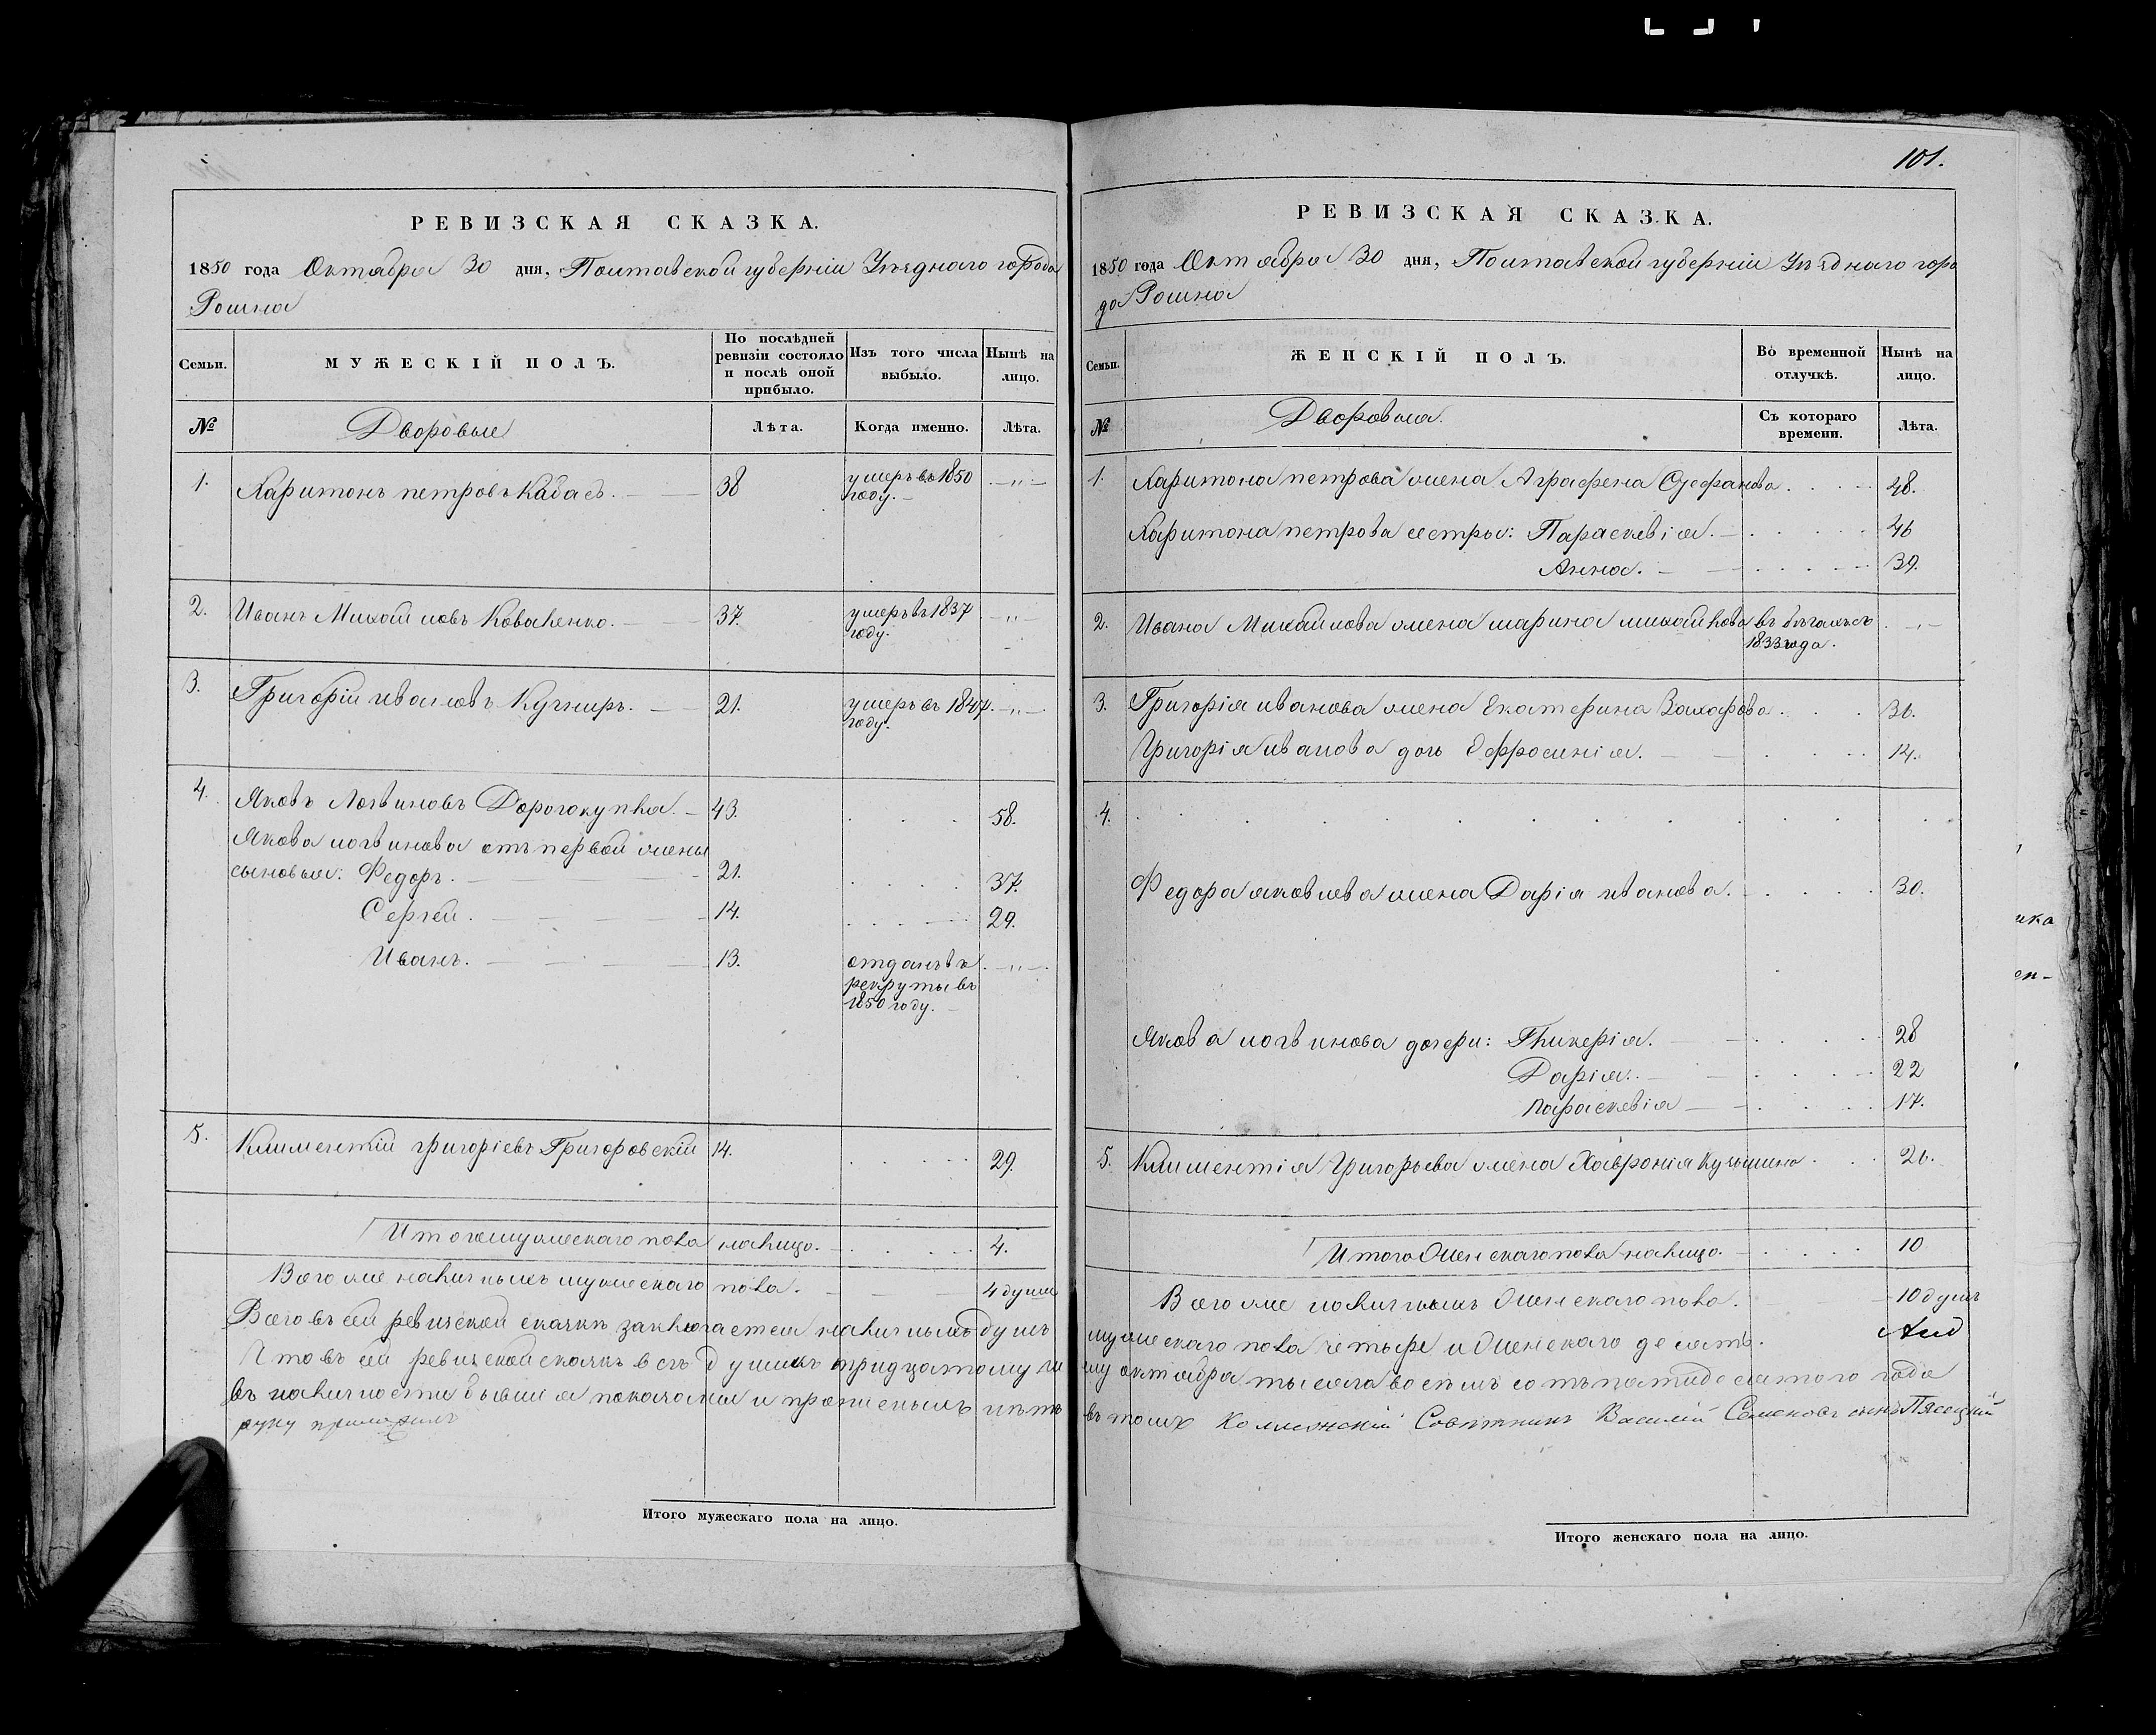 РЕВИЗСКАЯ СКАЗКА.
1850 года Октября 30 дня, Полтавской губерніи Уѣзднаго города
Ромна
Семьи.
МУЖЕСКІЙ ПОЛЪ.
По послѣдней
ревизіи состояло
и послѣ оной
прибыло.
Изъ того числа
выбыло.
Нынѣ на
лицо.
№
Дворовые
Лѣта.
Когда именно.
Лѣта.
1. Харитонъ петровъ Кабасъ. 38 умеръ въ 1850 — „ —
году.
2. Иванъ Михайловъ Коваленко. 37. умеръ въ 1837 — „ —
году.
3. Григорій ивановъ Кушниръ. 21. умеръ въ 1847. — „ —
году.
4. Яковъ Логвиновъ Дорогокупля. 43. 58.
Якова логвинова отъ первой жены
сыновья: Федоръ. 21. 37.
Сергей. 14. 29.
Иванъ. 13. отданъ въ — „ —
рекруты въ
1850 году.
5. Климентій григоріевъ Григоровскій 14. 29.
Итого мужескаго пола налицо. 4.
Всего же наличныхъ мужескаго пола. 4 души
Всего въ сей ревизской сказкѣ заключается наличныхъ душъ
Что въ сей ревизской сказкѣ всѣ душы къ тридцатому чи
въ наличности бывшія показаны и прописныхъ нѣтъ
руку приложилъ
Итого мужескаго пола на лицо.
101.
РЕВИЗСКАЯ СКАЗКА.
1850 года Октября 30 дня, Полтавской губерніи Уѣзднаго горо
да Ромна
Семьи.
ЖЕНСКІЙ ПОЛЪ.
Во временной
отлучкѣ.
Нынѣ на
лицо.
№
Дворовыя.
Съ котораго
времени.
Лѣта.
1. Харитона петрова жена Аграфена Стефанова 48.
Харитона петрова сестры: Параскевія. 46
Анна. 39.
2. Ивана Михайлова жена марина михайлова въ бѣгахъ съ — „ —
1833 года.
3. Григорія иванова жена Екатерина Захарова 36.
Григорія иванова дочь Ефросинія. 14.
4.
Федора яковлева жена Дарія иванова. 30.
Якова логвинова дочери: Гликерія. 28
Дарія. 22
параскевія 17.
5. Климентія Григорьева жена Хавронія Кузьмина 26.
Итого Женскаго пола налицо. 10
Всего же наличныхъ Женскаго пола. 10 душъ
мужескаго пола четыре и Женскаго десять.
лу октября тысяча восемь сотъ пятидесятого года
въ томъ Коллежскій Совѣтникъ Василій Семеновъ сынъ Пясецкій
Итого женскаго пола на лицо.